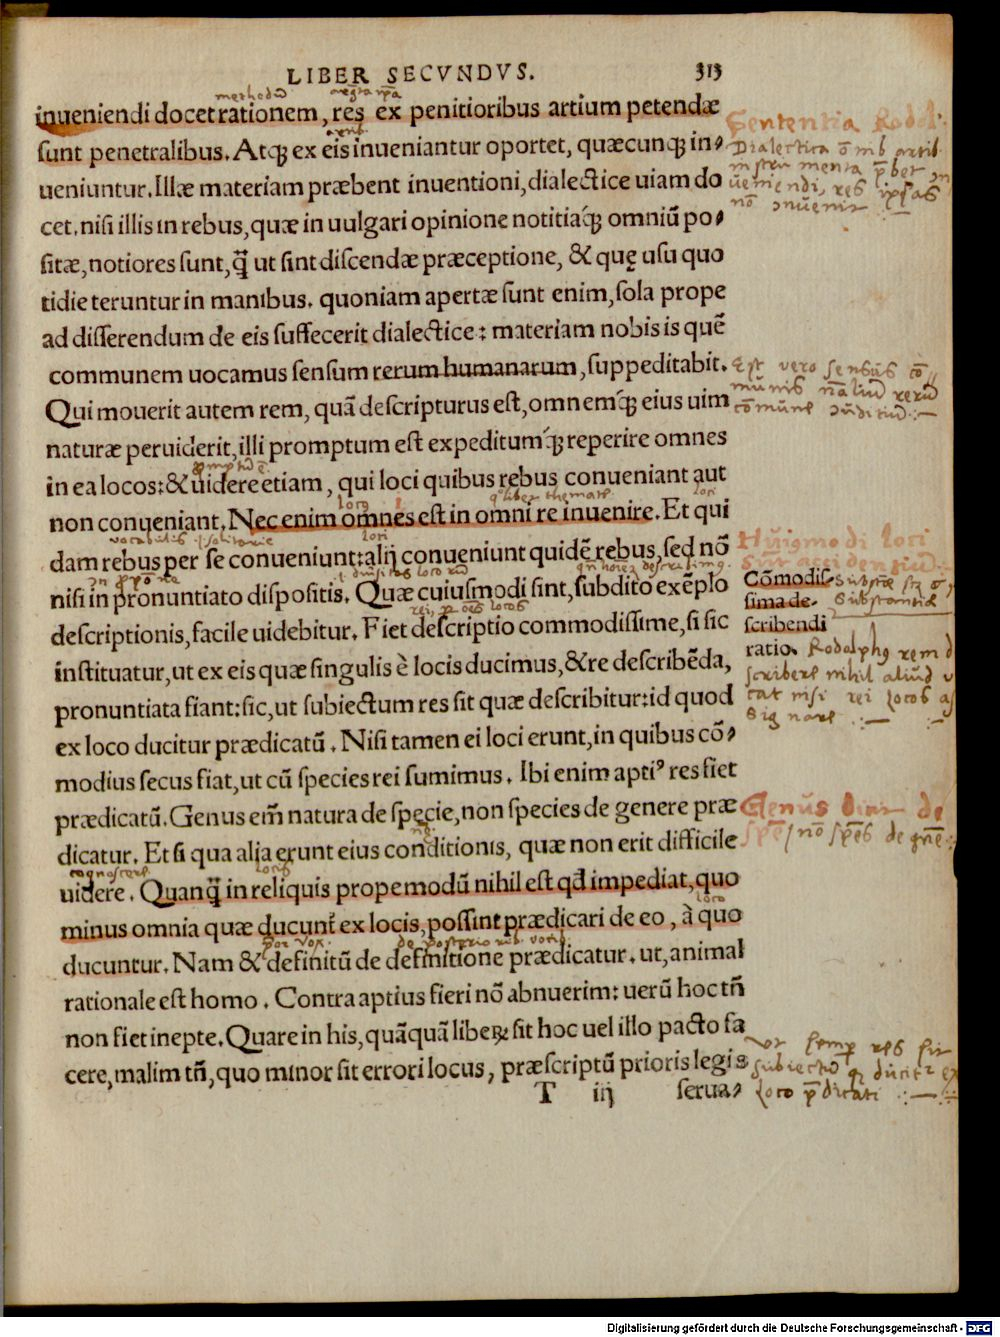 LIBER SECVNDVS. 313
inueniendi docet rationem, res ex penitioribus artium petendæ
sunt penetralibus. Atq; ex eis inueniantur oportet, quæcunq; in-
ueniuntur. Illæ materiam præbent inuentioni, dialectice uiam do
cet. nisi illis in rebus, quæ in uulgari opinione notitiáq; omniū po-
sitæ, notiores sunt, q̃ ut sint discendæ præceptione, & quę usu quo
tidie teruntur in manibus. quoniam apertæ sunt enim, sola prope
ad disserendum de eis suffecerit dialectice: materiam nobis is quē
communem uocamus sensum rerum humanarum, suppeditabit.
Qui mouerit autem rem, quā descripturus est, omnemq́; eius uim
naturæ peruiderit, illi promptum est expeditumq́; reperire omnes
in ea locos: & uidere etiam, qui loci quibus rebus conueniant aut
non conueniant. Nec enim omnes est in omni re inuenire. Et qui
dam rebus per se conueniunt: alij conueniunt quidē rebus, sed nō
nisi in pronuntiato dispositis. Quæ cuiusmodi sint, subdito exēplo
descriptionis, facile uidebitur. Fiet descriptio commodissime, si sic
instituatur, ut ex eis quæ singulis è locis ducimus, & re describēda,
pronuntiata fiant: sic, ut subiectum res sit quæ describitur: id quod
ex loco ducitur prædicatū. Nisi tamen ei loci erunt, in quibus cō-
modius secus fiat, ut cū species rei sumimus. Ibi enim apti⁹ res fiet
prædicatū. Genus em̄ natura de specie, non species de genere præ
dicatur. Et si qua alia erunt eius conditionis, quæ non erit difficile
uidere. Quanq̃ in reliquis propemodū nihil est qd̄ impediat, quo
minus omnia quæ ducunt̃ ex locis, possint prædicari de eo, à quo
ducuntur. Nam & definitū de definitione prædicatur. ut, animal
rationale est homo. Contra aptius fieri nō abnuerim: uerū hoc tñ
non fiet inepte. Quare in his, quāquā liberꝝ sit hoc uel illo pacto fa
cere, malim tñ, quo minor sit errori locus, præscriptū prioris legis
T iij serua-
Sententia Rodol.
Dialectica
res ipsas
Est vero sensus cō
munis
Cōmodis-
sima de-
scribendi
ratio.
Rodolph⁹ rem d
scribere nihil aliud v
cat nisi rei locos as
signare
Genus de
res sit
loco
Digitalisierung gefördert durch die Deutsche Forschungsgemeinschaft - DFG